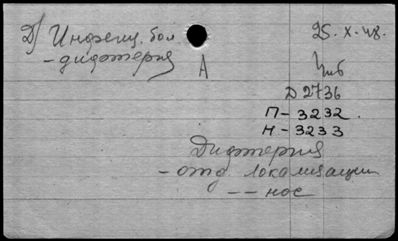 Д) Инфекц. бол
- дифтерия
А
25. X. 48.
Д 2736
П - 3232
Н - 3233
Дифтерия
- отд. локализации
- - нос